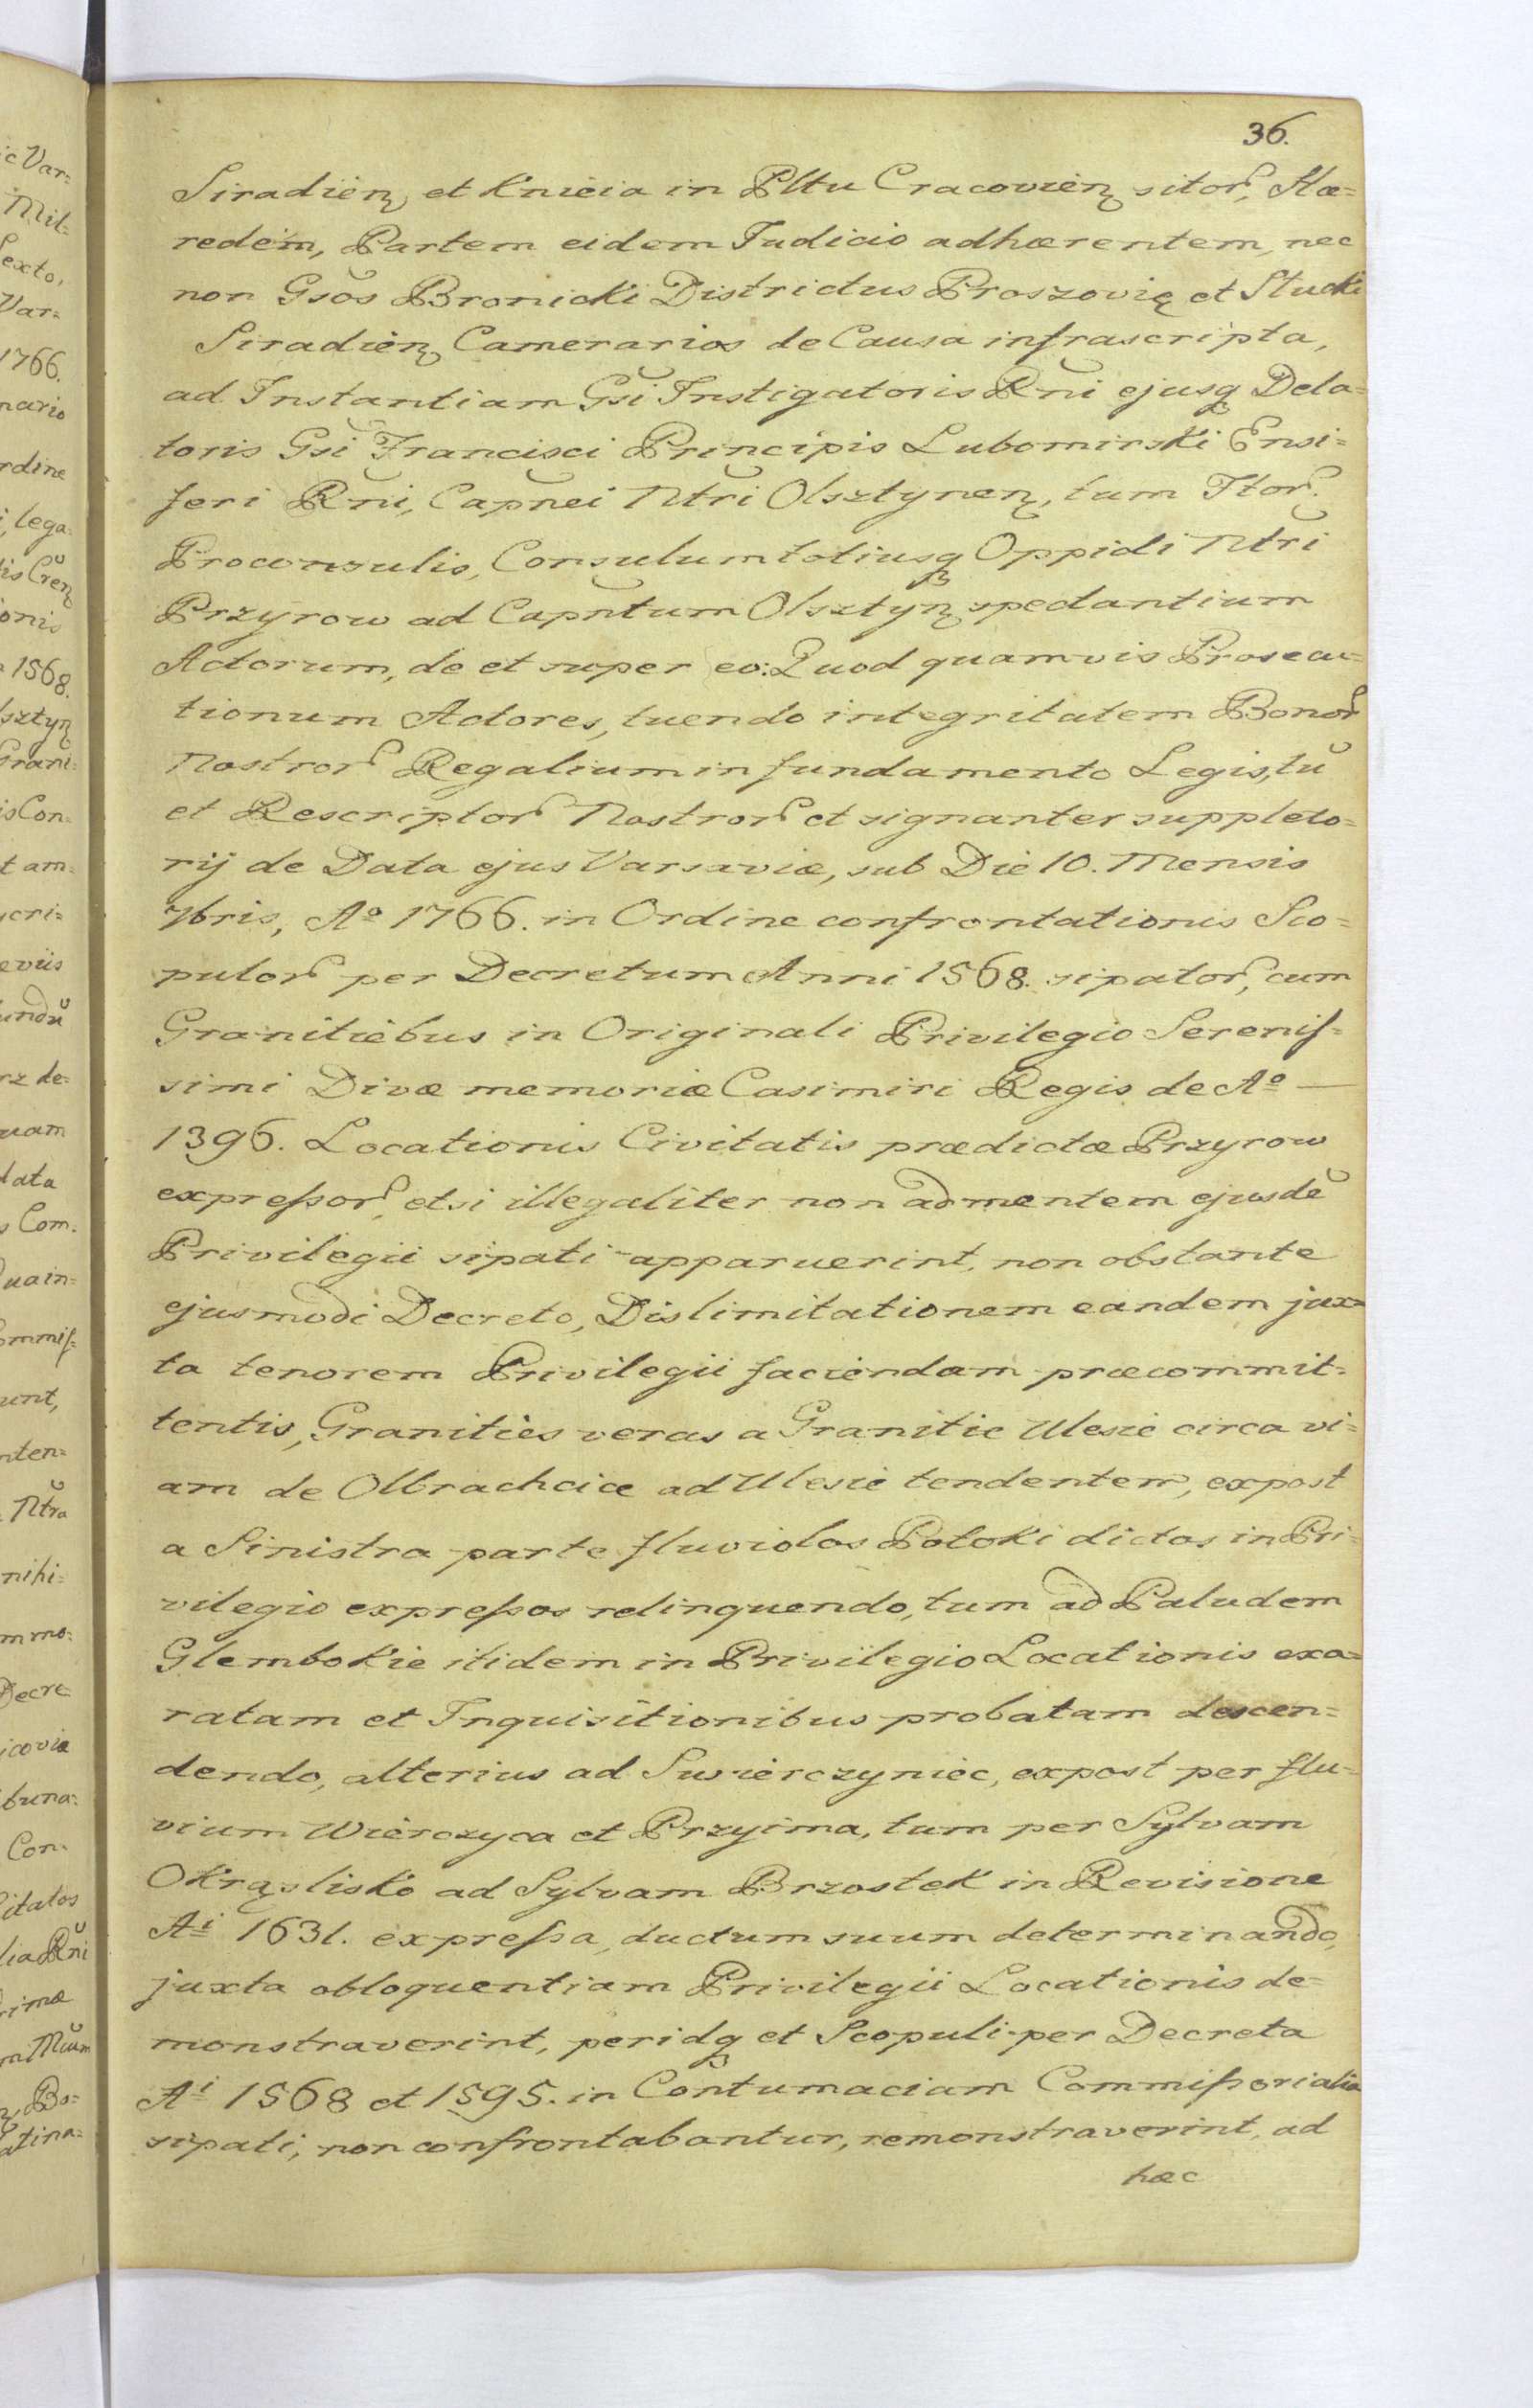 36.
Siradien. et Knieia in Pltu Cracovien. sitor., Hæ=
redem, Partem eidem Judicio adhærentem, nec
non Gsōs Bronicki Districtus Proszovię et Stucki
Siradien. Camerarios de Causa infrascripta,
ad Instantiam Gsi Instigatoris Rn̄i ejusq Dela=
toris Gsi Francisci Principis Lubomirski Ensi=
feri Rn̄i, Capn̄ei Ntr̄i Olsztynen., tum Ftor.
Proconsulis, Consulum totiusq Oppidi Ntr̄i
Przyrow ad Capn̄tum Olsztyn. spectantium
Actorum, de et super eo: Quod quamvis Prosecu=
tionum Actores, tuendo integritatem Bonor.
Nostror. Regalium in fundamento Legis, tū
et Rescriptor. Nostror. et signanter suppleto=
rij de Data ejus Varsaviæ, sub Die 10. Mensis
7bris, Aº 1766. in Ordine confrontationis Sco=
pulor. per Decretum Anni 1568. sipator., cum
Granitiebus in Originali Privilegio Serenis=
simi Divæ memoriæ Casimiri Regis de Aº —
1396. Locationis Civitatis prædictæ Przyrow
expressor., etsi illegaliter non ad mentem ejusdē
Privilegii sipati apparuerint, non obstante
ejusmodi Decreto, Dislimitationem eandem jux=
ta tenorem Privilegii faciendam præcommit=
tentis, Granities veras a Granitie Ulesie circa vi=
am de Olbrachcice ad Ulesie tendentem, expost
a Sinistra parte fluviolos Potoki dictos in Pri=
vilegio expressos relinquendo, tum ad Paludem
Glembokie itidem in Privilegio Locationis exa=
ratam et Inquisitionibus probatam descen=
dendo, alterius ad Swierczyniec, expost per flu=
vium Wierczyca et Przyima, tum per Sylvam
Okrąslisko ad Sylvam Brzostek in Revisione
Ai 1631. expressa, ductum suum determinando,
juxta obloquentiam Privilegii Locationis de=
monstraverint, peridq et Scopuli per Decreta
Ai 1568 et 1595. in Contumaciam Commissorialia
sipati, non confrontabantur, remonstraverint, ad
hæc